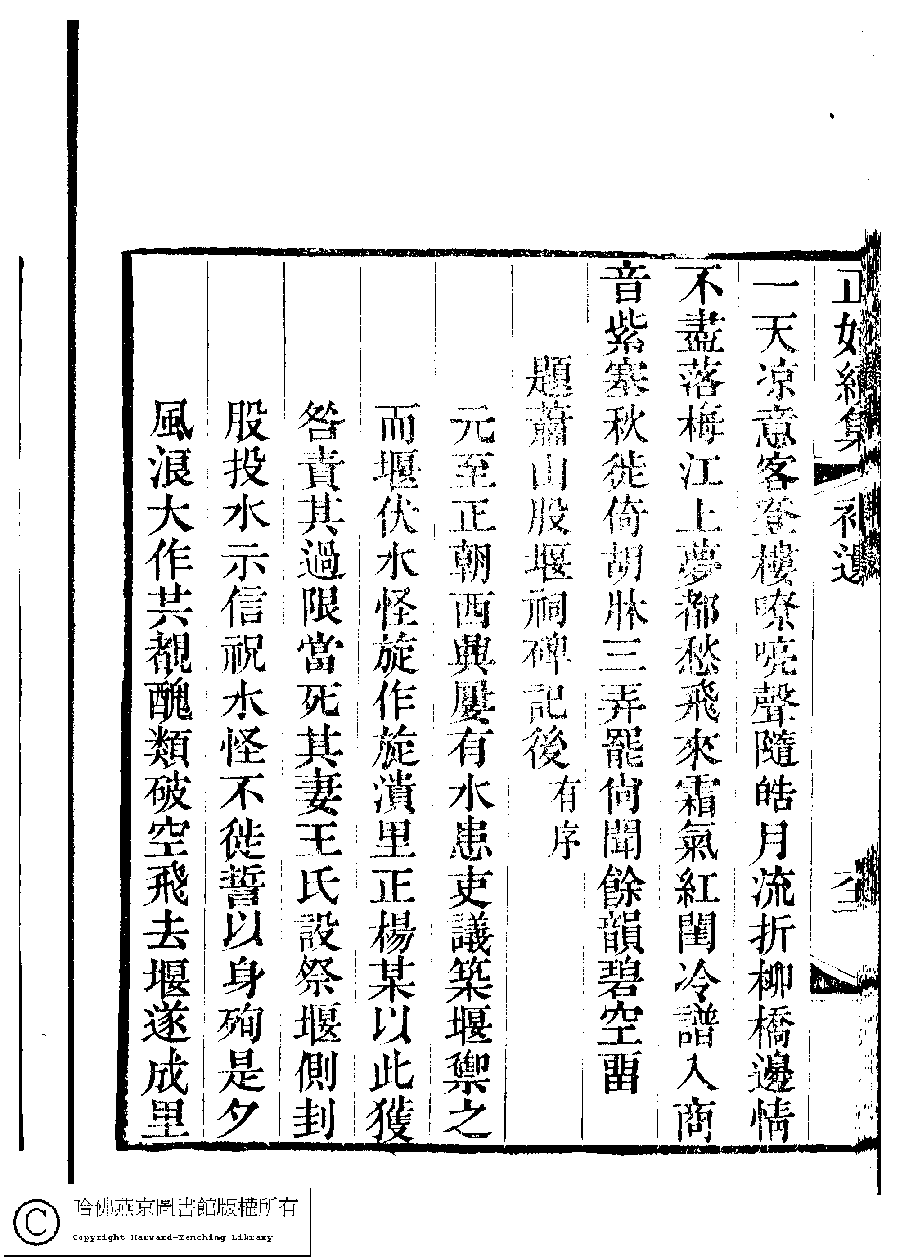 正始續集
補遺
一天凉意客登樓嘹喨聲隨皓月流折柳橋邊情
不盡落梅江上夢都愁飛來霜氣紅閨冷譜入商
音紫塞秋徙倚胡牀三弄罷尙聞餘韻碧空畱
題蕭山股堰祠碑記後有序
元至正朝西興屢有水患吏議築堰禦之
而堰伏水怪旋作旋潰里正楊某以此獲
咎責其過限當死其妻王氏設祭堰側刲
股投水示信祝水怪不徙誓以身殉是夕
風浪大作共覩醜類破空飛去堰遂成里
哈佛燕京圖書館版權所有
Copyright Harvard-Yenching Library